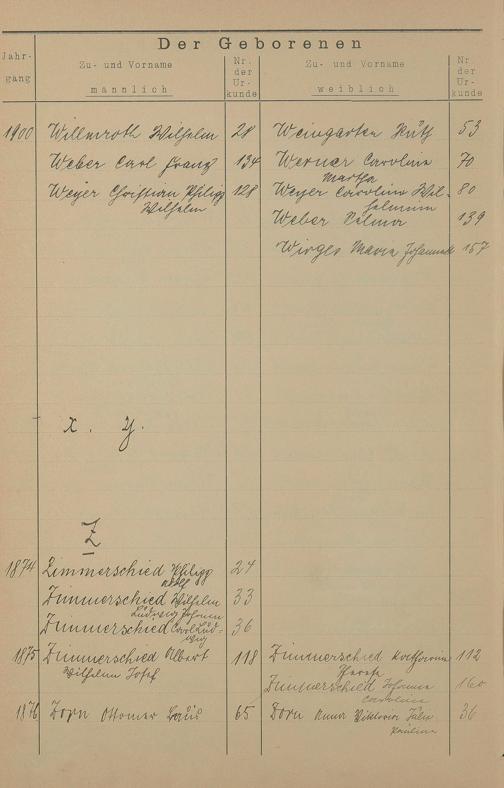 Der Geborenen
Jahr-
gang
Zu- und Vorname
männlich
Nr.
der
Ur-
kunde
Zu- und Vorname
weiblich
Nr.
der
Ur-
kunde
1900 Willmroth Wilhelm 28 Weingarten Ruth 53
Weber Carl Franz 134 Werner Caroline 70
Martha
Weyer Christian Philipp 128 Weyer Caroline Wil- 80
Wilhelm helmine
Weber Selma 139
Wirges Maria Johanna 157
X. Y.
Z
1874 Zimmerschied Philipp 24
Adolf
Zimmerschied Wilhelm 33
Ludwig Johann
Zimmerschied Carl Lud- 36
wig
1875 Zimmerschied Albert 118 Zimmerschied Katharina 112
Wilhelm Josef
Zimmerschied Johanna 160
Caroline
1876 Zorn Ottomar Louis 65 Zorn Anna Viktoria Julie 36
Pauline